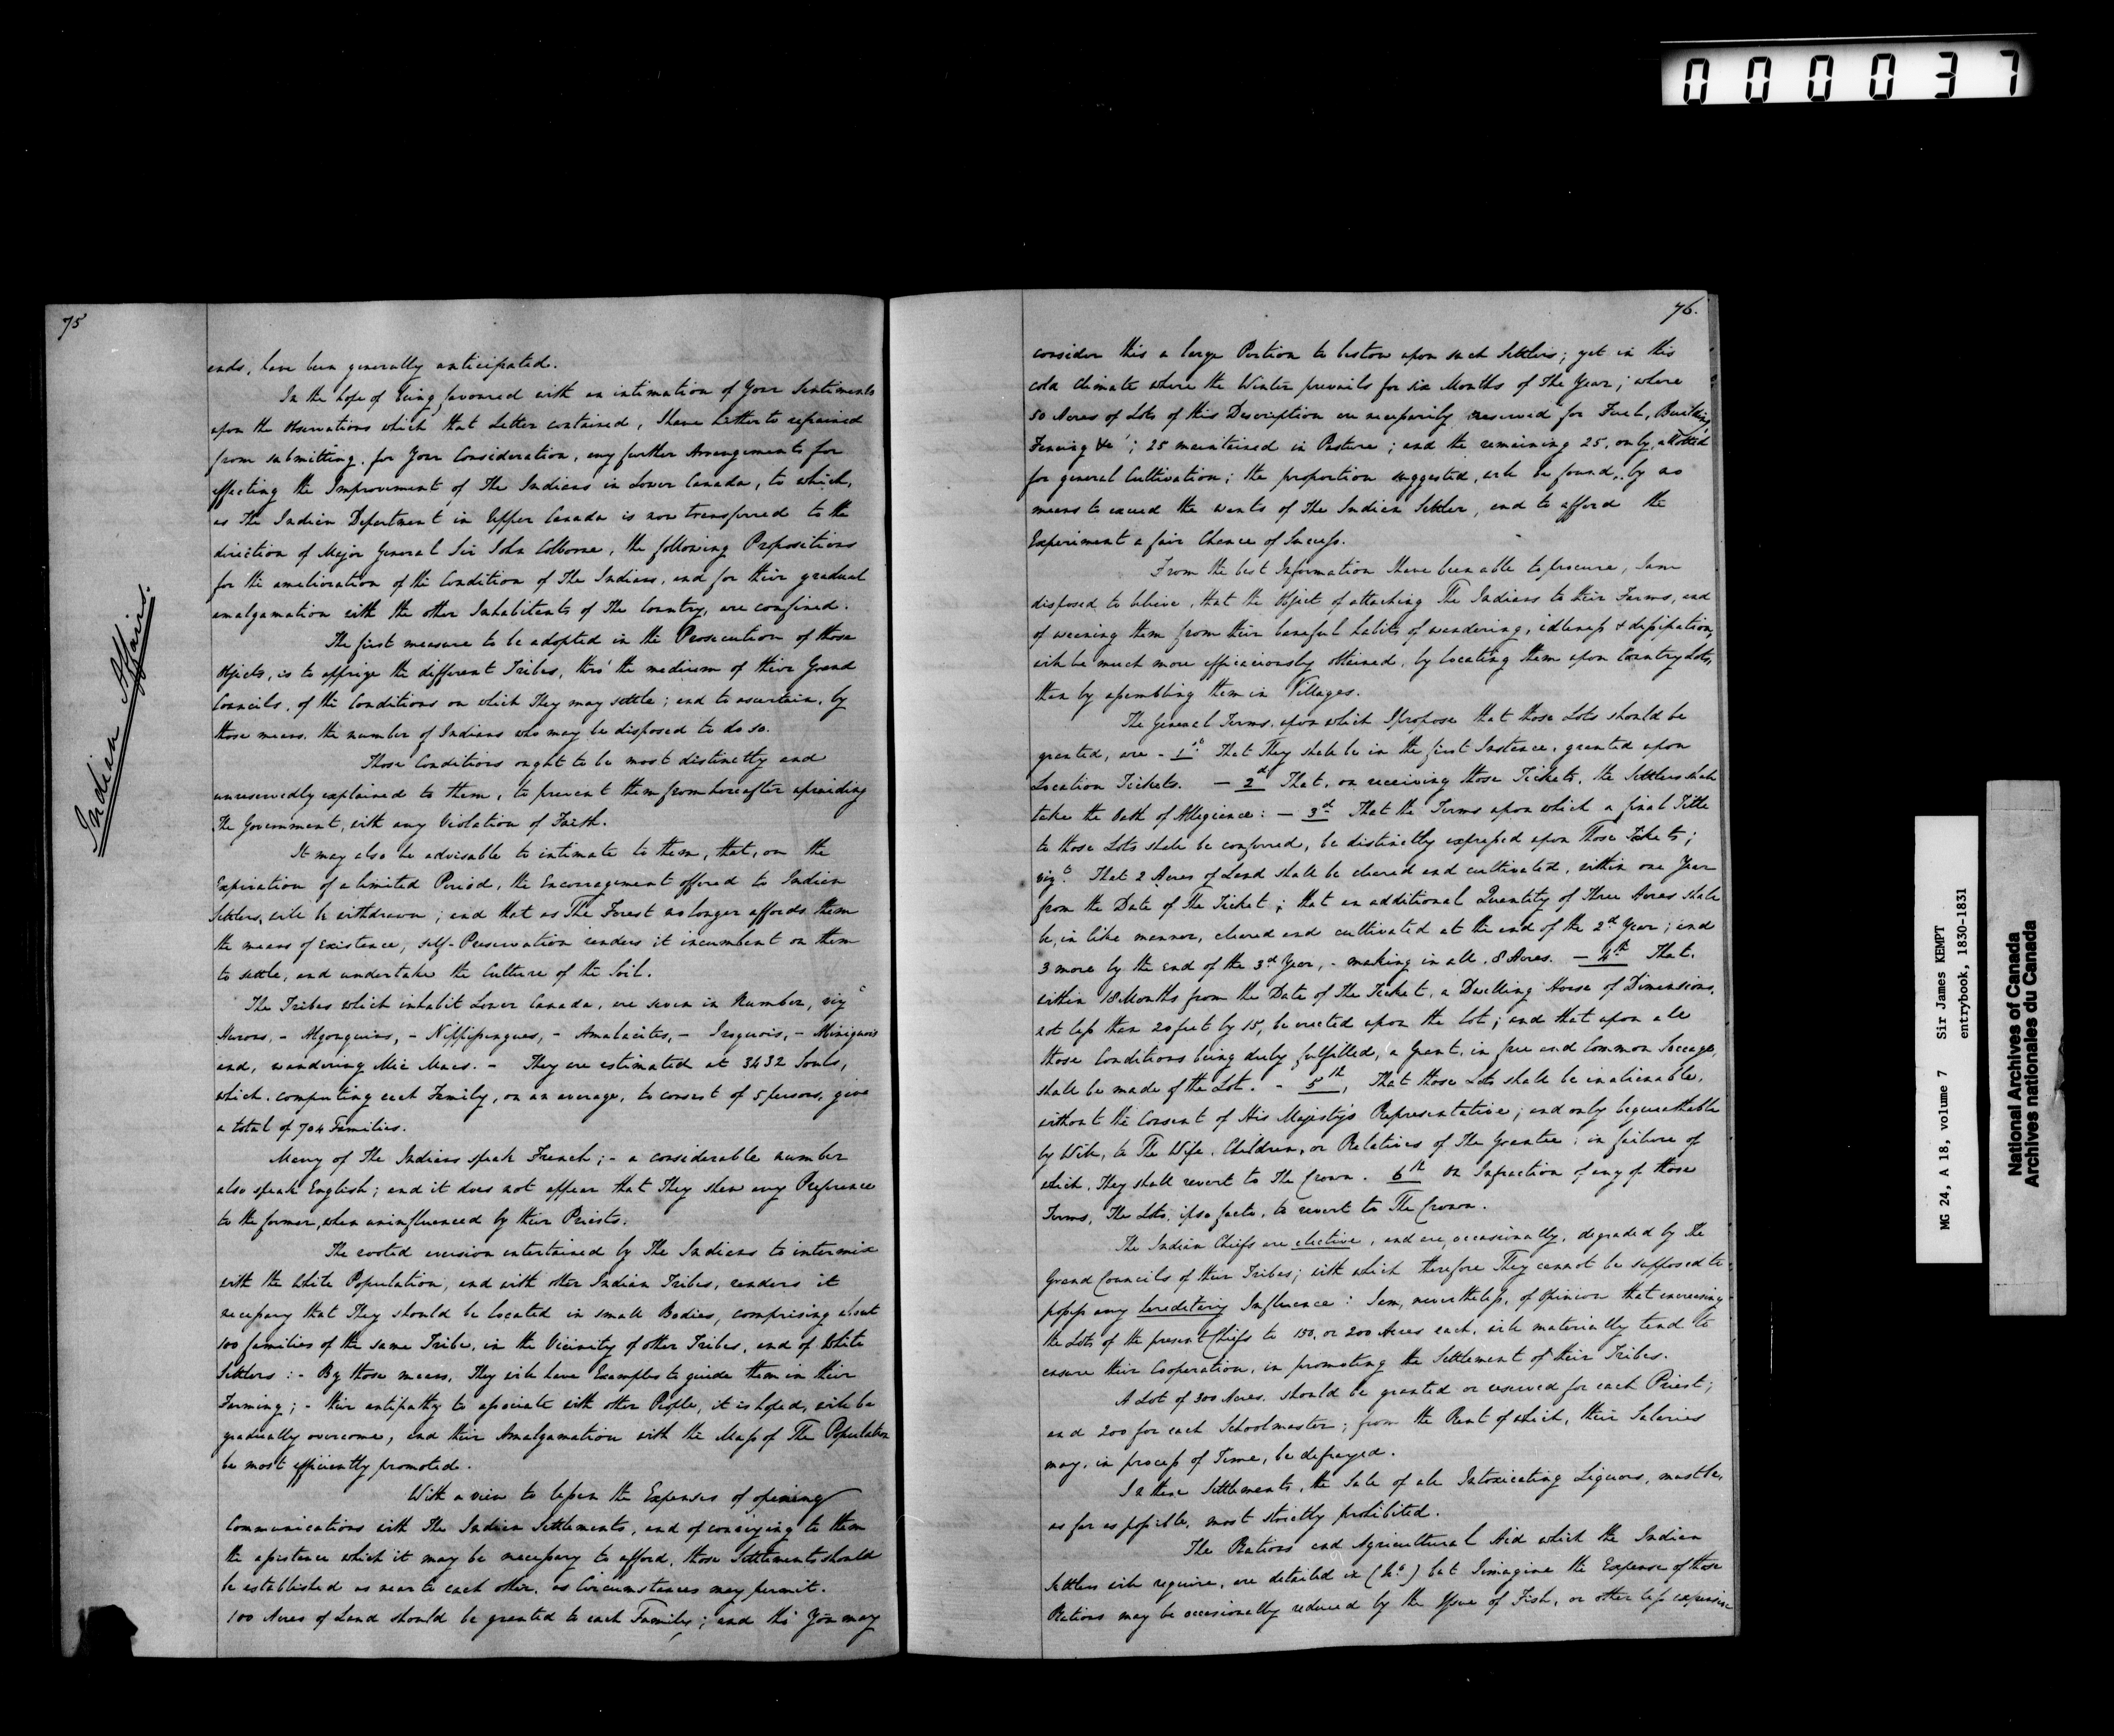 000037
75
Indian Affairs.
ends, have been generally anticipated.
In the hope of being favoured with an intimation of Your Sentiments
upon the Observations which that Letter contained, I have hitherto refrained
from submitting, for Your Consideration, any further Arrangements for
effecting the Improvement of The Indians in Lower Canada, to which,
as The Indian Department in Upper Canada is now transferred to the
direction of Major General Sir John Colborne, the following Propositions
for the amelioration of the Condition of The Indians, and for their gradual
amalgamation with the other Inhabitants of The Country, are confined.
The first measure to be adopted in the Prosecution of those
Objects, is to apprize the different Tribes, thro' the medium of their Grand
Councils, of the Conditions on which They may settle; and to ascertain, by
those means, the number of Indians who may be disposed to do so.
Those Conditions ought to be most distinctly and
unreservedly explained to them, to prevent them from hereafter upraiding
The Government, with any Violation of Faith.
It may also be advisable to intimate to them, that, on the
Expiration of a limited Period, the Encouragement offered to Indian
Settlers, will be withdrawn; and that as The Forest no longer affords them
the means of existence, self-Preservation renders it incumbent on them
to settle, and undertake the Culture of the Soil.
The Tribes which inhabit Lower Canada, are seven in Number, viz
Hurons, - Algonquins, - Nippissingues, - Amalacites, - Iroquois, -
and, wandering Mic Macs. - They are estimated at 3432 Souls,
which, computing each Family, on an average, to consist of 5 persons, give
a total of 704 Families.
Many of The Indians speak French; - a considerable number
also speak English; and it does not appear that They shew any Preference
to the former, when uninfluenced by their Priests.
The rooted aversion entertained by The Indians to intermix
with the White Population, and with other Indian Tribes, renders it
necessary that They should be located in small Bodies, comprising about
100 families of the same Tribe, in the Vicinity of other Tribes, and of White
Settlers: - By those means, They will have Examples to guide them in their
Farming; - their antipathy to associate with other People, it is hoped, will be
gradually overcome, and their Amalgamation with the Mass of The Population
be most efficiently promoted.
With a view to lessen the Expenses of opening
Communications with The Indian Settlements, and of conveying to them
the assistance which it may be necessary to afford, those Settlements should
be established as near to each other, as Circumstances may permit.
100 Acres of Land should be granted to each Family; and tho' You may
76.
consider this a large Portion to bestow upon such Settlers; yet in this
cold Climate where the Winter prevails for six Months of The Year; where
50 Acres of Lots of this Description are necessarily reserved for Fuel, Building,
Fencing &c; 25 maintained in Pasture; and the remaining 25, only, allotted
for general Cultivation; the proportion suggested, will be found, by no
means to exceed the wants of The Indian Settler, and to afford the
Experiment a fair Chance of Success.
From the best Information I have been able to procure, I am
disposed to believe, that the Object of attaching The Indians to their Farms, and
of weaning them from their baneful habits of wandering, idleness & dissipation,
will be much more efficaciously obtained, by locating them upon Country Lots,
than by assembling them in Villages.
The General Terms, upon which I propose that those Lots should be
granted, are - 1st That They shall be in the first Instance, granted upon
Location Tickets. - 2d That, on receiving those Tickets, the Settlers shall
take the Oath of Allegiance: - 3d That the Terms upon which a final Title
to those Lots shall be conferred, be distinctly expressed upon Those Tickets;
vizt. That 2 Acres of Land shall be cleared and cultivated, within one Year
from the Date of The Ticket; that an additional Quantity of Three Acres shall
be, in like manner, cleared and cultivated at the end of the 2d Year; and
3 more by the end of the 3d Year, - making in all, 8 Acres. - 4th That,
within 18 Months from the Date of The Ticket, a Dwelling House of Dimensions,
not less than 20 feet by 15, be erected upon the Lot; and that upon all
those Conditions being duly fulfilled, a Grant, in free and Common Soccage,
shall be made of the Lot. - 5th, That those Lots shall be inalienable,
without the Consent of His Majesty's Representative; and only bequeathable
by Will, to The Wife, Children, or Relatives of The Grantee: in failure of
which, They shall revert to The Crown. 6th On Infraction of any of those
Terms, The Lots, ipso facto, to revert to The Crown.
The Indian Chiefs are elective, and are, occasionally, degraded by the
Grand Councils of their Tribes; with which therefore They cannot be supposed to
possess any hereditary Influence: I am, nevertheless, of Opinion that increasing
the Lots of the present Chiefs to 150, or 200 Acres each, will materially tend to
ensure their Cooperation, in promoting the Settlement of their Tribes.
A Lot of 300 Acres, should be granted or reserved for each Priest;
and 200 for each Schoolmaster; from the Rent of which, their Salaries
may, in process of Time, be defrayed.
In these Settlements, the Sale of all Intoxicating Liquors, must be,
as far as possible, most strictly prohibited.
The Rations and Agricultural Aid which the Indian
Settlers will require, are detailed in but I imagine the Expense of those
Rations may be occasionally reduced by the Issue of Fish, or other less expensive
MG 24, A 18, volume 7 Sir James KEMPT
entrybook, 1830-1831
National Archives of Canada
Archives nationales du Canada